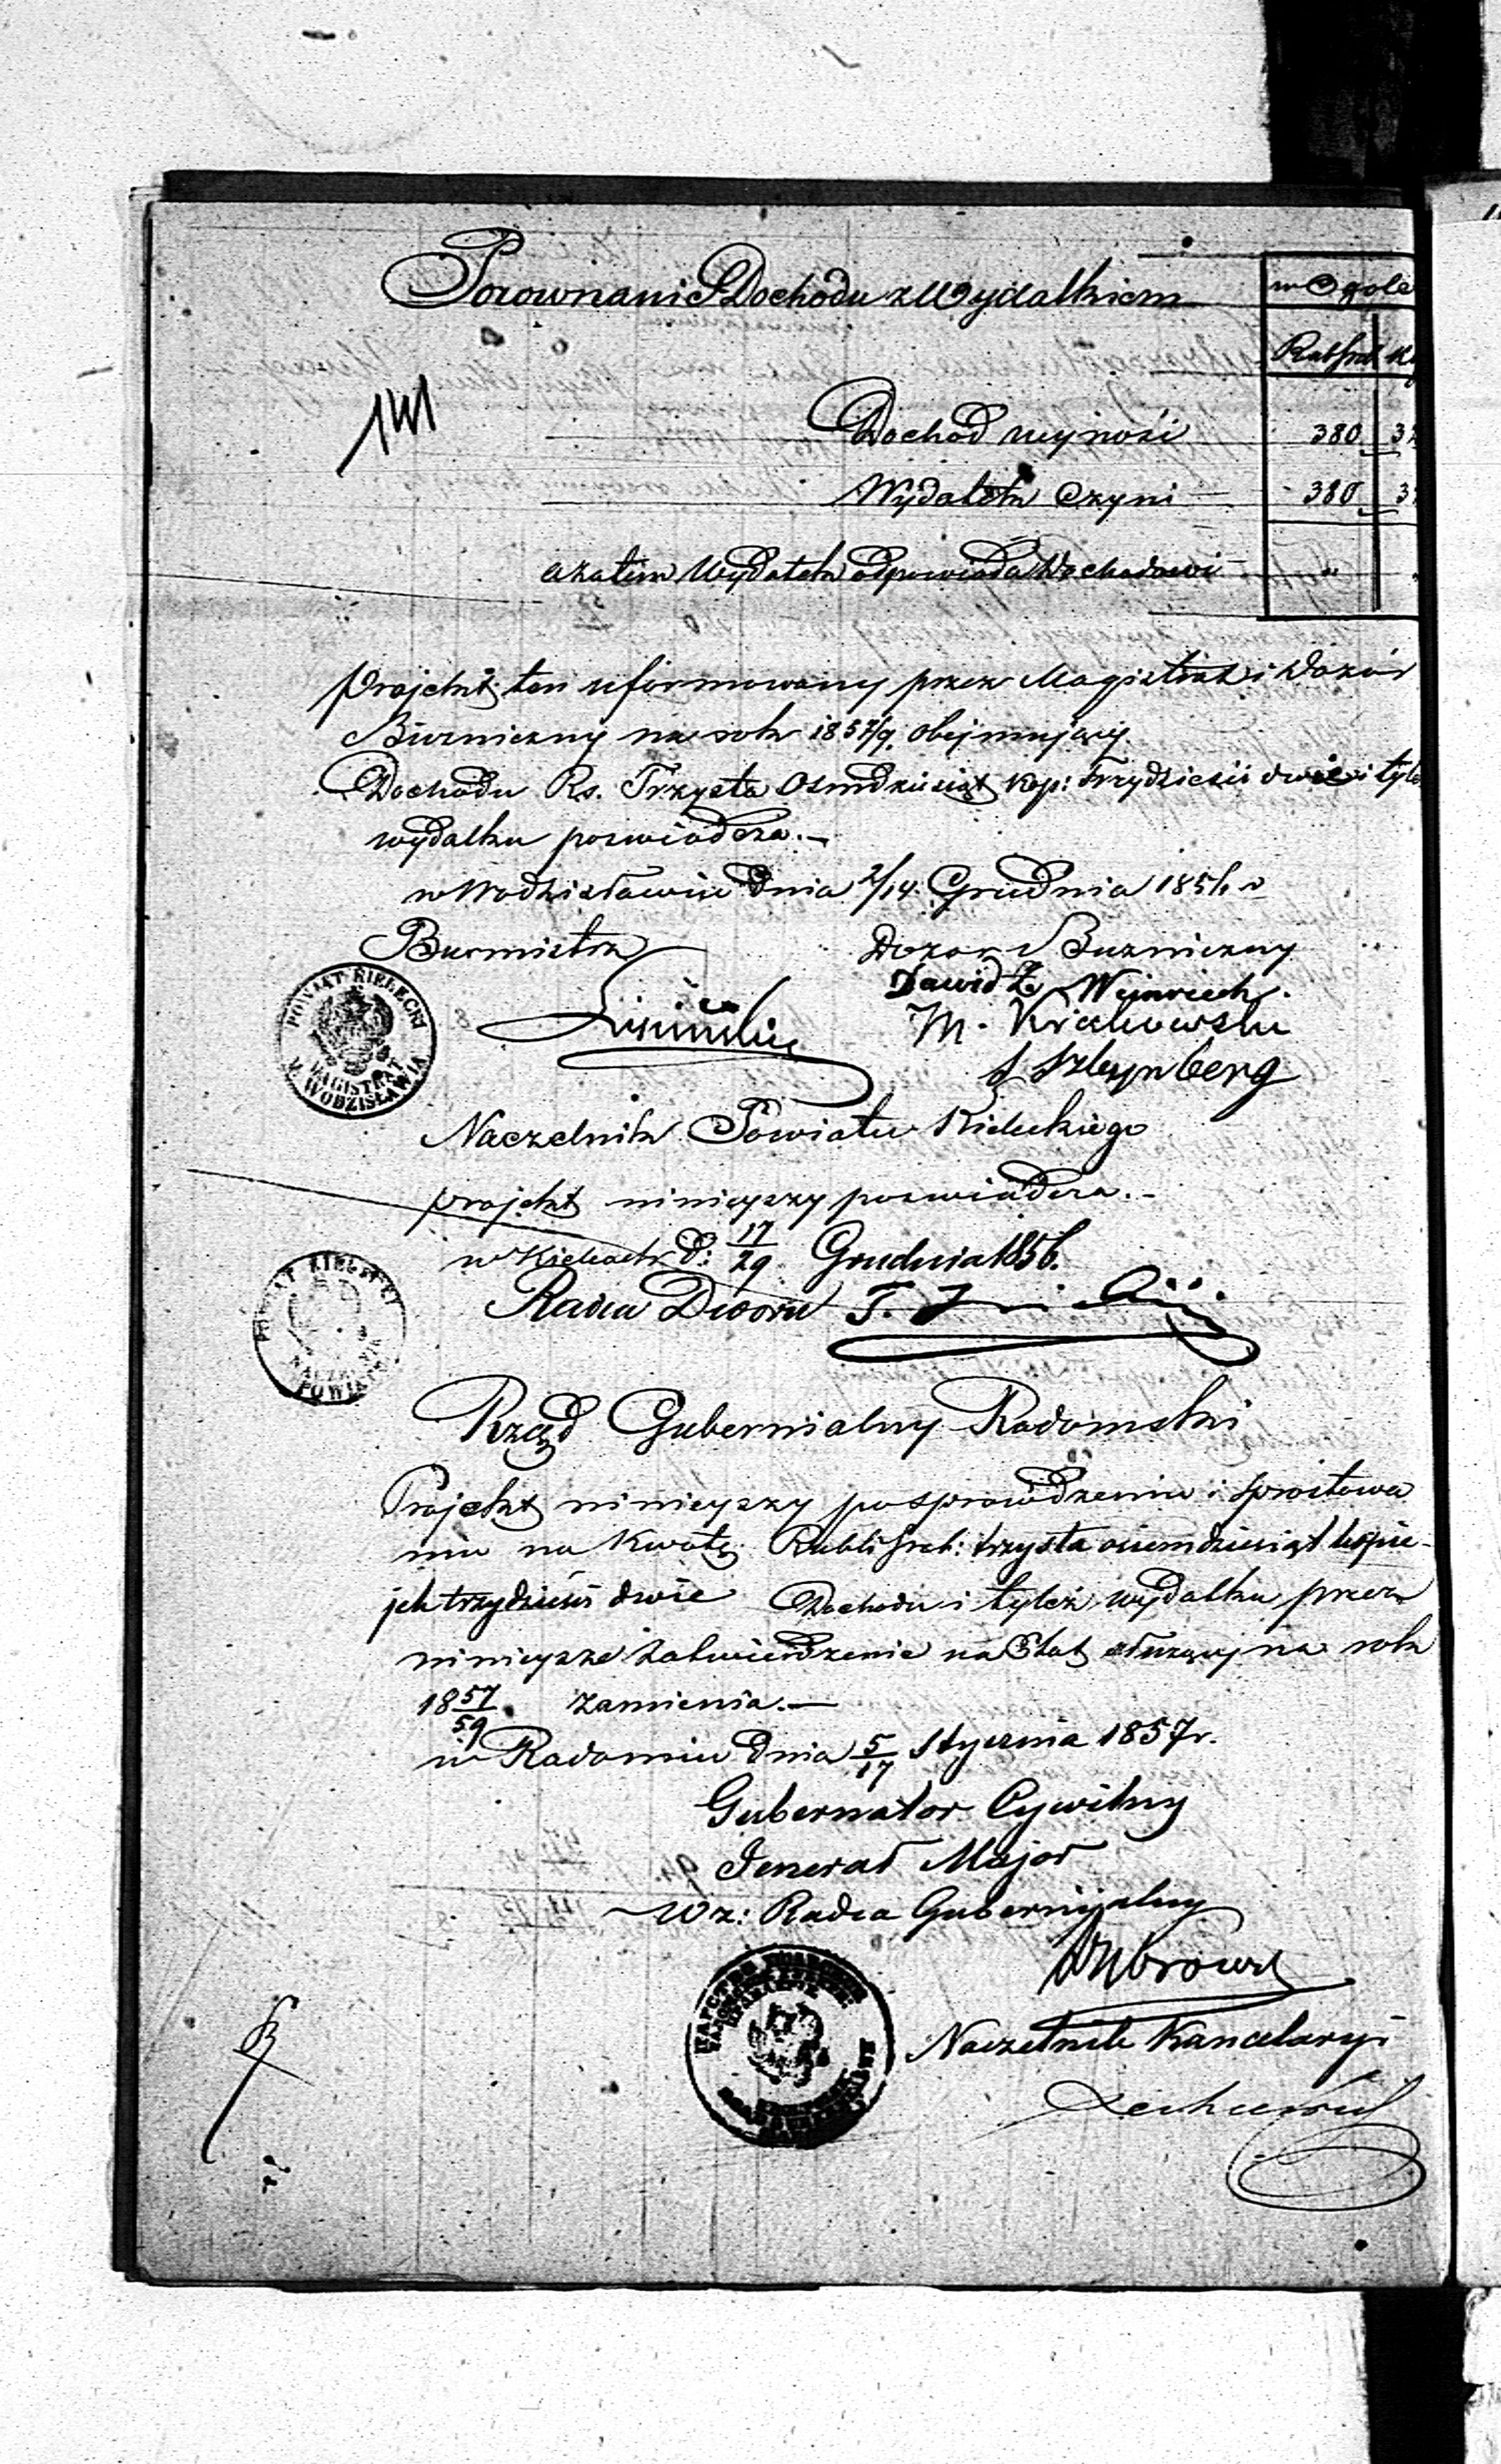 Porownanie Dochodu z Wydatkiem
w Ogole
Rubsreb
141
Dochod wynosi 380
Wydatek Czyni 380
a zatem Wydatek odpowiada Dochodowi "
Projekt ten uformowany przez Magistrat i Dozór
Bóżniczny na rok 1857/9. obejmujący
Dochodu Rs. Trzysta Osmdziesiąt kop: Trzydzieści dwie i tyle
wydatku poswiadcza.—
w Wodzisławiu dnia 2/14. Grudnia 1856 r
Burmistrz Dozor Bużniczny
Dawid
M.
Szteynberg
POWIAT KIELECKI
MAGISTRAT
M. WODZISŁAWIA
Naczelnik Powiatu Kieleckiego
projekt ninieyszy poswiadcza.–
w Kielcach d: 17/29 Grudnia 1856.
Radca Dworu T.
POWIAT KIELECKI
NACZELNIK
POWIATU
Rząd Gubernialny Radomski
Projekt ninieyszy po sprawdzeniu i sprostowa
niu na kwotę Rubli sreb: trzysta osiemdziesiąt kopie-
jek trzydzieści dwie Dochodu i tyleż wydatku przez
ninieysze zatwierdzenie na Etat służący na rok
18 57/59 zamienia.—
w Radomiu dnia 5/17 Stycznia 1857 r.
Gubernator Cywilny
Jenerał Major
w z: Radca Gubernijalny
Naczelnik Kancelaryi